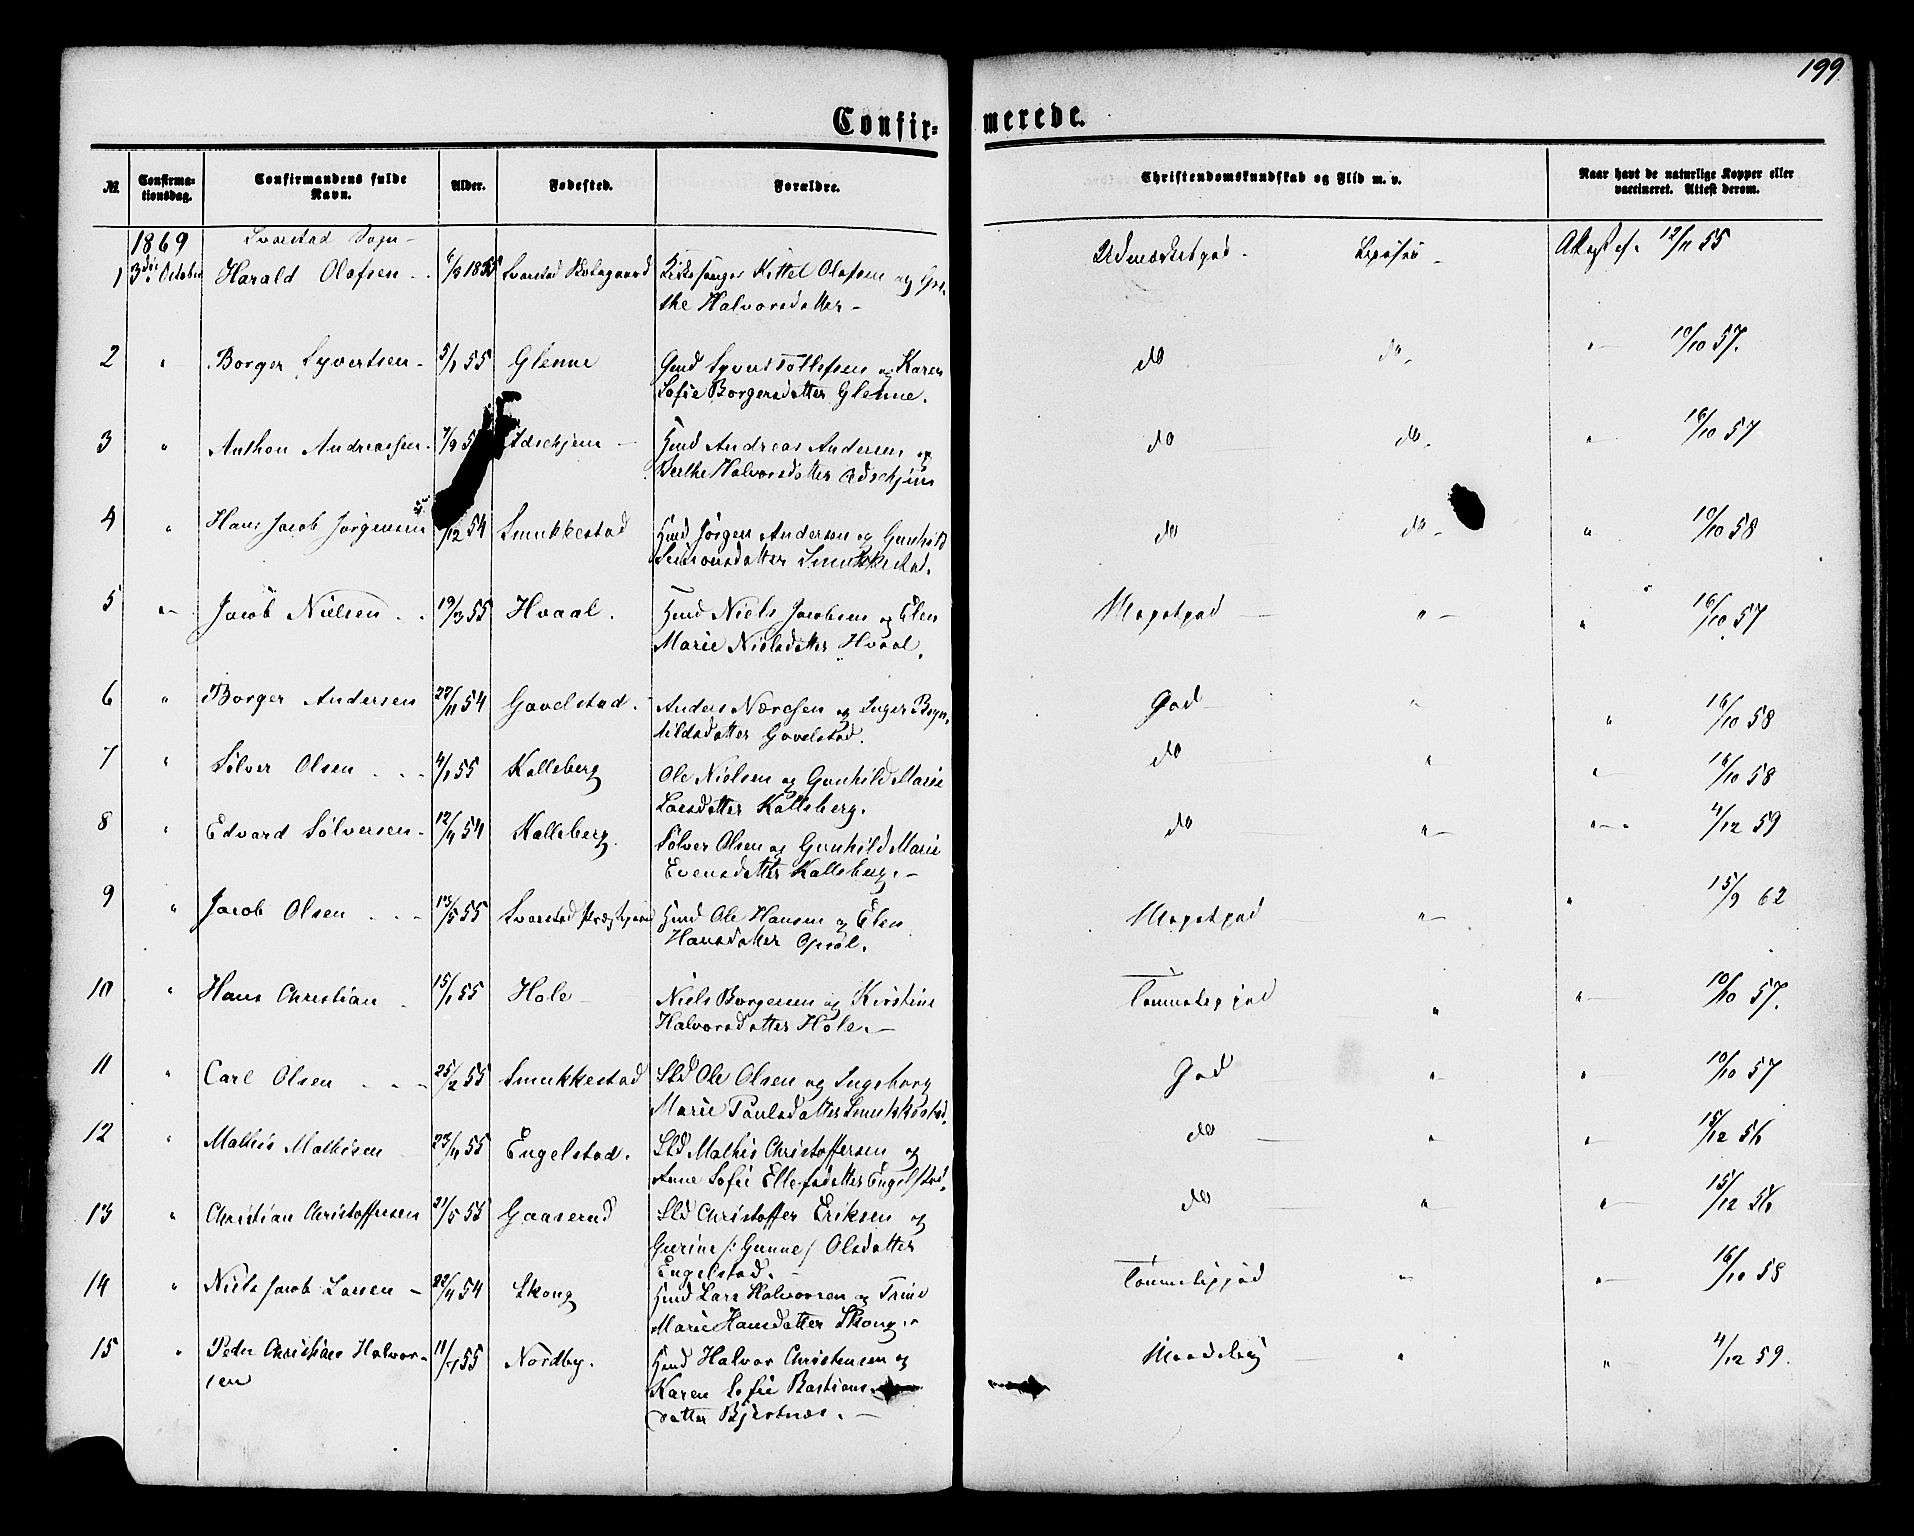 199
Confir= merede.
№. Confirma=tionsdag. Confirmandens fulde Navn. Alder. Fødested. Forældre. Christendomskundskab og Flid m. v. Naar havt de naturlige Kopper eller vaccineret. Attest derom.
1869 Svarstad Sogn
1 3die October Harald Olafsen 1855 Svarstad Kittel Olafsen og
the Halvorsdatter 12/11 55
2 " Borger Syvertsen 5/1 55 Glenne Gmd Syvert Tollefsen og Karen do do " 10/10 57.
Sofie Borgersdatter Glenne.
3 " Anthon Andreassen Hmd Andreas Andersen og do do " 16/10 57
Berthe Halvorsdatter
4 " Hans Jacob Jørgensen /12 54 Smukkestad Hmd Jørgen Andersen og Gunhild do do " 10/10 58
Simonsdatter Smukkestad.
5 " Jacob Nielsen 19/3 55 Hvaal. Hmd Niels Jacobsen og Elen Megetgod " " 16/10 57
Marie Nielsdatter Hvaal.
6 " Borger Andersen 22/11 54 Gavelstad. Anders og Inger God " " 16/10 58
datter Gavelstad.
7 " Sølver Olsen 4/1 55 Kalleberg Ole Nielsen og Gunhild Marie do " " 16/10 58
Larsdatter Kalleberg.
8 " Edvard Sølversen 12/4 54 Kalleberg. Sølver Olsen og Gunhild Marie do " " 4/12 59
Evensdatter Kalleberg.
9 " Jacob Olsen 13/5 55 Svarstad Præstegaard Hmd Ole Hansen og Elen Megetgod " " 15/9 62
Hansdatter
10 " Hans Christian 15/1 55 Hole Niels Borgersen og Kirstine Temmeligod " " 10/10 57.
Halvorsdatter Hole.
11 " Carl Olsen 25/2 55 Smukkestad Sld Ole Olsen og Ingeborg God " " 10/10 57
Marie Paulsdatter Smukkestad.
12 " Mathis Mathisen 23/4 55 Engelstad. Sld Mathis Christoffersen og do " " 15/12 56
Anne Sofie Ellefsdatter Engelstad.
13 " Christian Christoffersen 21/5 55 Gaaserud Sld Christoffer Eriksen og do " " 15/12 56
Gurine /: Gunne / Olsdatter
Engelstad.
14 " Niels Jacob Larsen 22/4 54 Skoug Hmd Lars Halvorsen og Trine Temmeligod " " 16/10 58
Marie Hansdatter Skoug.
15 " Peder Christian Halvor- 55 Nordby. Hmd Halvor Christensen og Maadelig " " 4/12 59.
sen Karen Sofie Bastians
datter Bjertnæs.